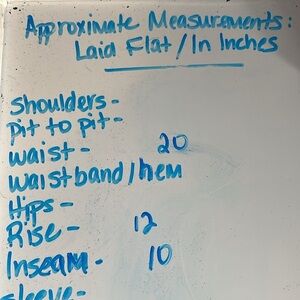 Approximate Measurements:
Laid Flat/In Inches
Shoulders-
Pit to pit-
waist- 20
waistband/hem
Hips-
Rise- 12
Inseam- 10
sleeve-